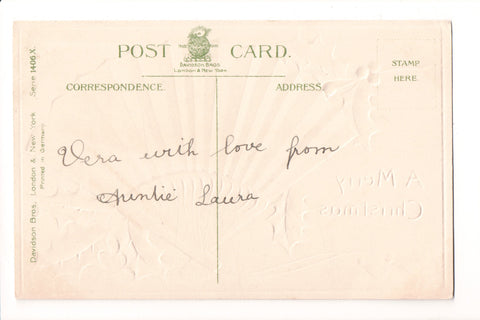 POST CARD.
Davidson Bros.
London & New York
CORRESPONDENCE.
ADDRESS.
STAMP
HERE.
Davidson Bros., London & New York. Serie 1406X.
Printed in Germany
Vera with love from
Auntie Laura
A Merry
Christmas